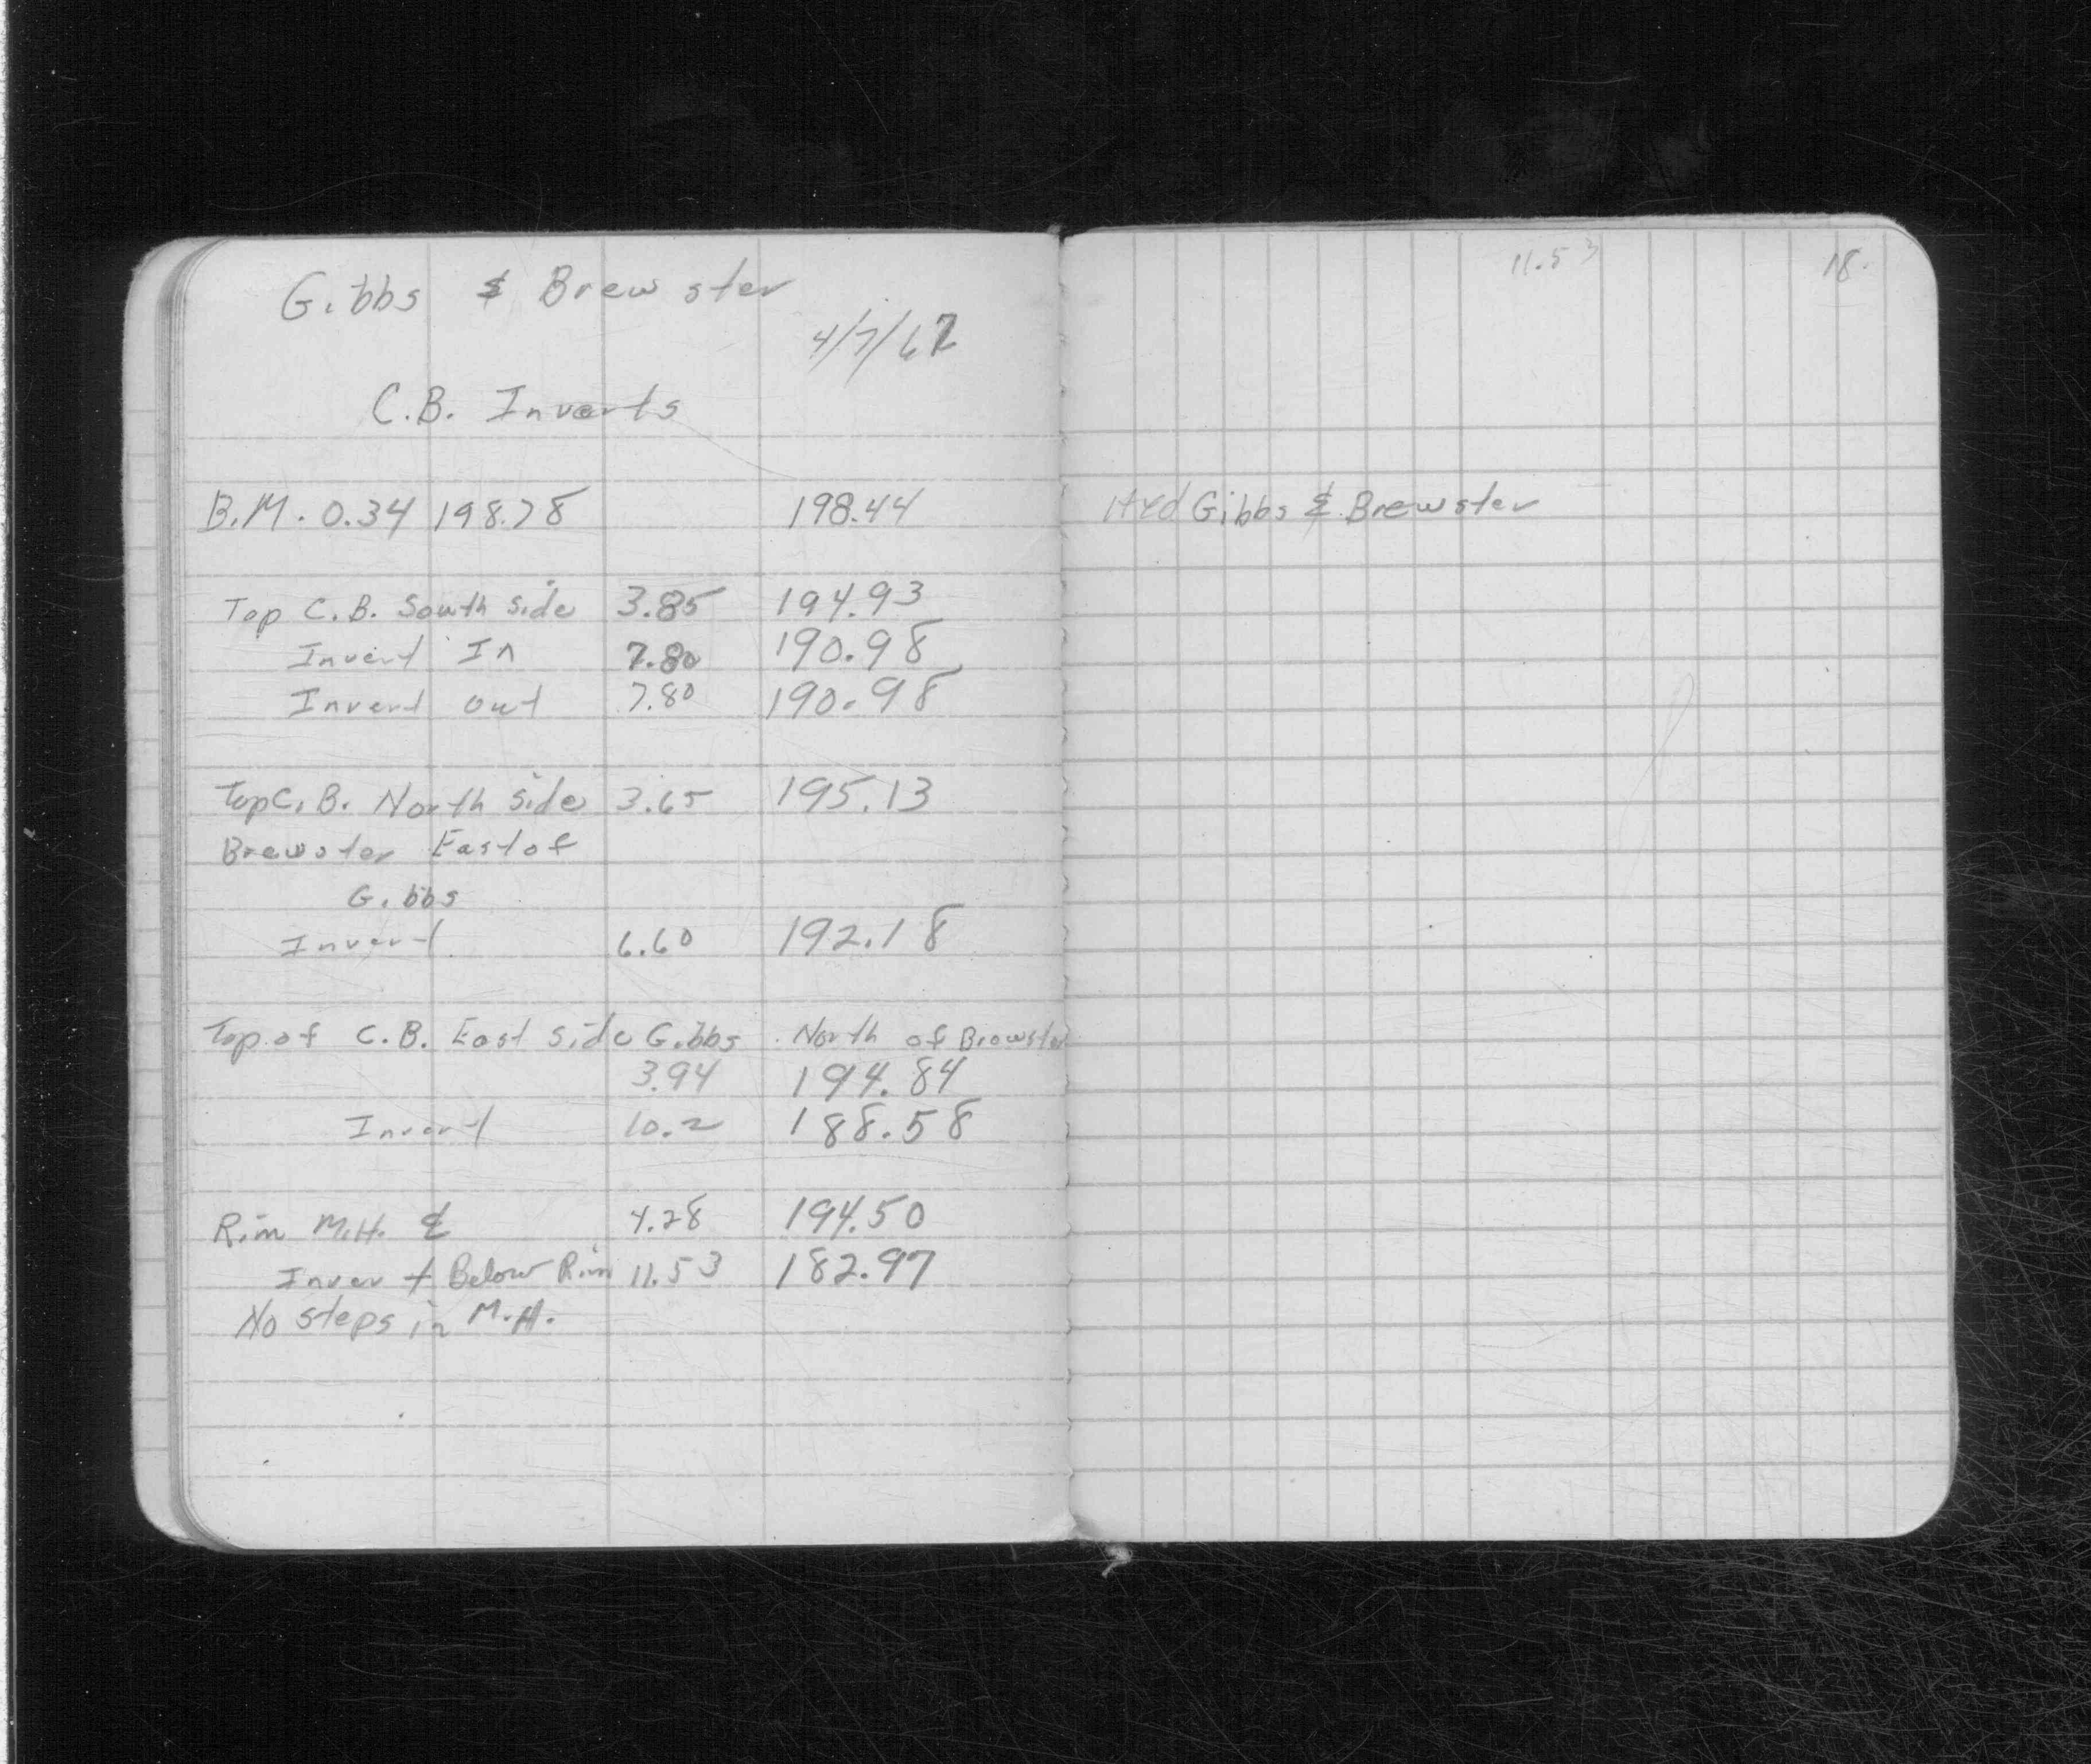 Gibbs & Brewster
4/7/62
C.B. Inverts
B.M. 0.34 198.78 198.44
Top C.B. South side 3.85 194.93
Invert In 7.80 190.98
Invert out 7.80 190.98
Top C.B. North side 3.65 195.13
Brewster East of
Gibbs
Invert 6.60 192.18
Top of C.B. East side Gibbs North of Brewster
3.94 194.84
Invert 10.2 188.58
Rim M.H. ℄ 4.28 194.50
Invert Below Rim 11.53 182.97
No steps in M.H.
11.53 18.
Hyd Gibbs & Brewster